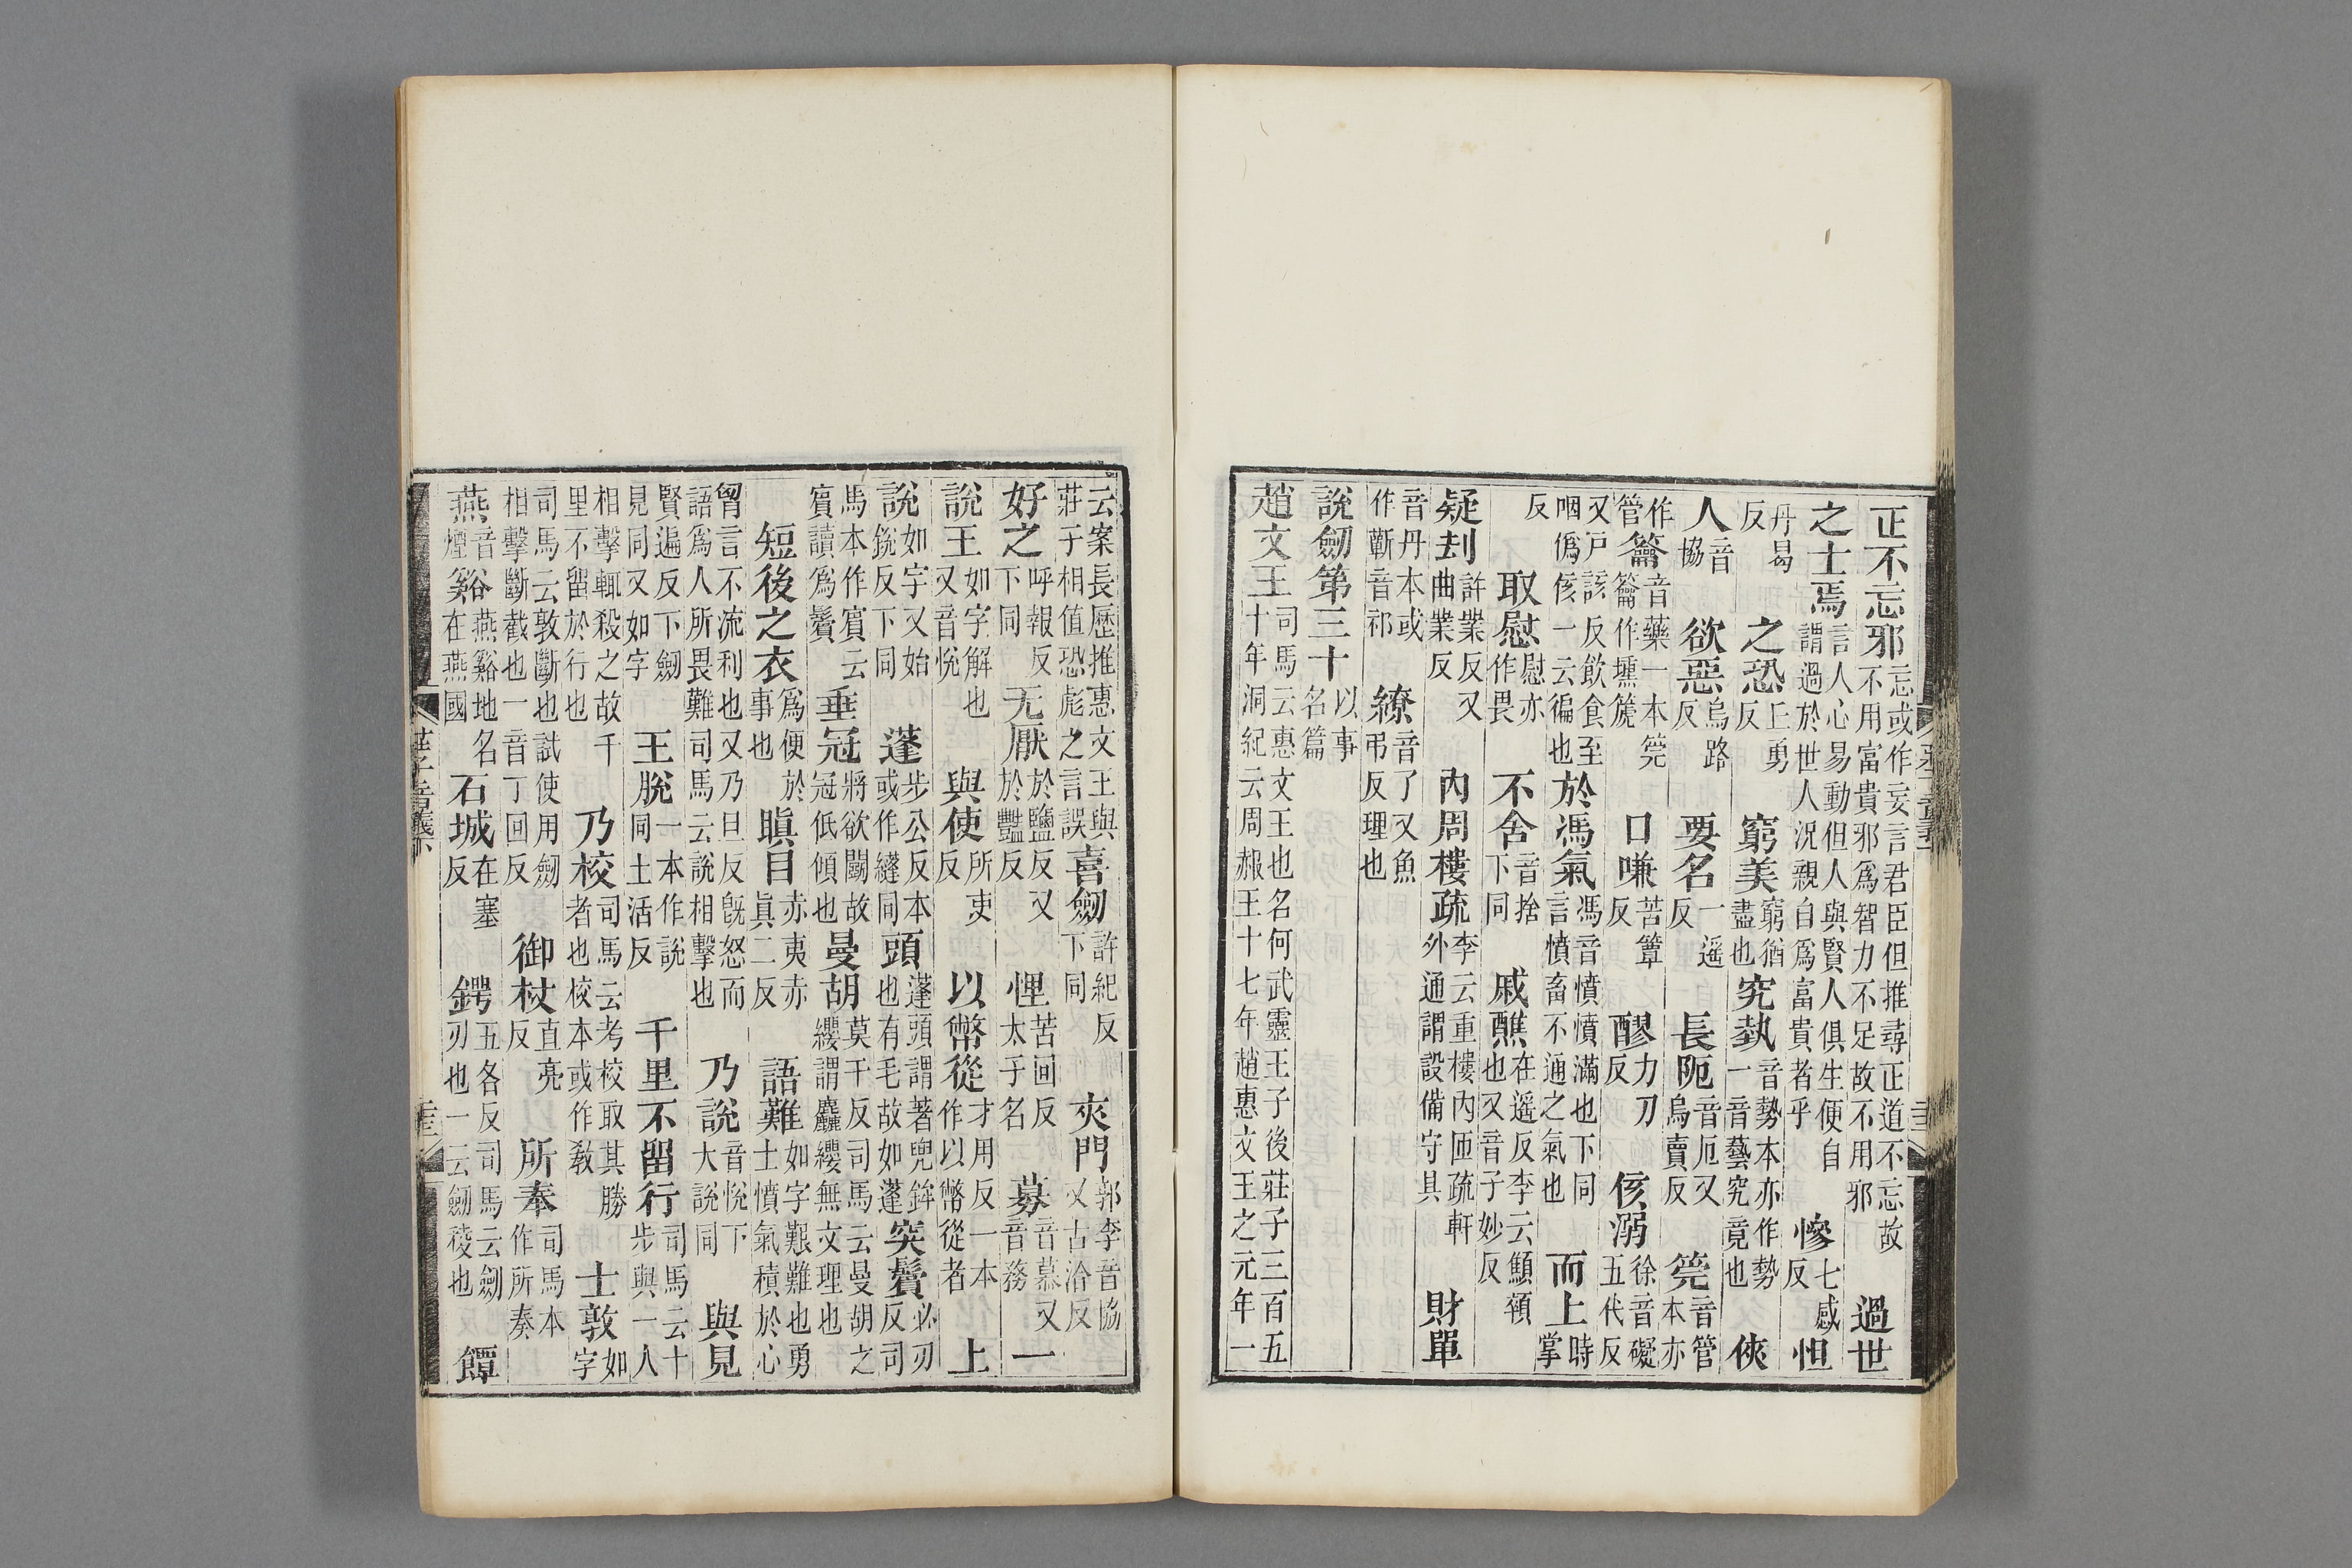 正不忘邪忘或作妄言君臣但推尋正道不忘故不用富貴邪爲智力不足故不用邪過世
之士焉言人心易動但人與賢人俱生便自謂過於世人況親自爲富貴者乎慘七感反怛
丹曷反之恐丘勇反窮美窮猶盡也究埶音勢本亦作勢一音藝究竟也俠
人音協欲惡烏路反要名一遥反長阨音厄又烏賣反筦音管本亦
作管籥音藥一本筦籥作壎篪口嗛苦簟反醪力刀反侅溺徐音礙五代反
又戸該反飲食至咽僞侅一云徧也於馮氣馮音憤憤滿也下同言憤畜不通之氣也而上時掌
反取慰慰亦作畏不舍音捨下同戚醮在遥反李云顦顇也又音子妙反
疑刦許業反又曲業反內周樓疏李云重樓內匝疏軒外通謂設備守具財單
音丹本或作蘄音祁繚音了又魚弔反理也
說劒第三十以事名篇
趙文王司馬云惠文王也名何武靈王子後莊子三百五十年洞紀云周赧王十七年趙惠文王之元年一
云案長歷推惠文王與莊子相值恐彪之言誤喜劒許紀反下同夾門郭李音協又古洽反
好之呼報反下同无厭於鹽反又於豔反悝苦回反太子名募音慕又音務一
說王如字解也又音悅與使所吏反以幣從才用反一本作以幣從者上
說如字又始銳反下同蓬步公反本或作縫同頭蓬頭謂著兜鉾也有毛故如蓬突鬢必刃反司
馬本作賓云賓讀爲鬢垂冠將欲鬬故冠低傾也曼胡莫干反司馬云曼胡之纓謂麤纓無文理也
短後之衣爲便於事也瞋目赤夷赤眞二反語難如字艱難也勇士憤氣積於心
胷言不流利也又乃旦反旣怒而語爲人所畏難司馬云說相擊也乃說音悅下大說同與見
賢遍反下劒見同又如字王脫一本作說同土活反千里不留行司馬云十步與一人
相擊輒殺之故千里不留於行也乃校司馬云考校取其勝者也校本或作教士敦如字
司馬云敦斷也試使用劒相擊斷截也一音丁回反御杖直亮反所奉司馬本作所奏
燕音煙谿燕谿地名在燕國石城在塞反鍔五各反司馬云劒刃也一云劒稜也鐔